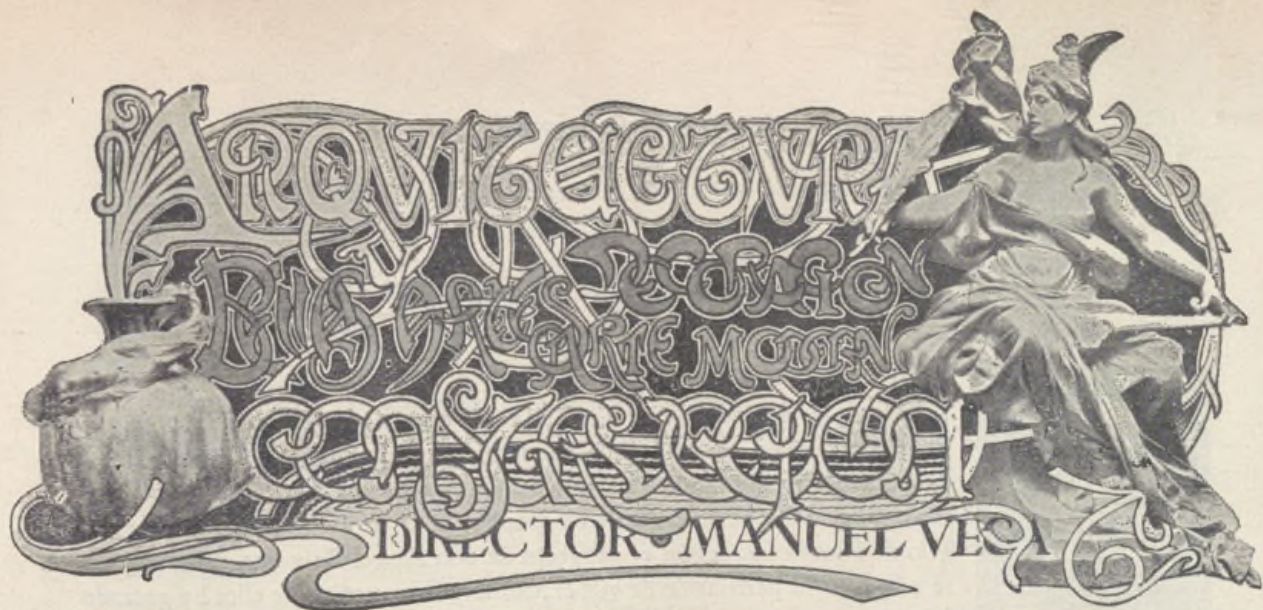 ARQVITECTVRA
BELLAS ARTES DECORACION
ARTE MODERN
CONSTRUCCION
DIRECTOR • MANUEL VEGA